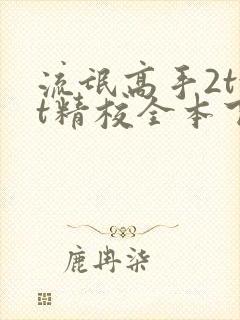 流氓高手2t
t精校全本
鹿冉柒